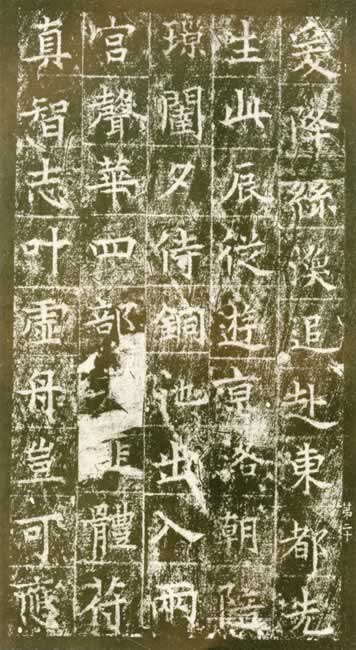 爰降絲渙追赴東都先
生此辰從遊京洛朝陪
夕侍銅池出入兩
宮聲華四部非體符
真智志叶虛舟豈可應
第二十